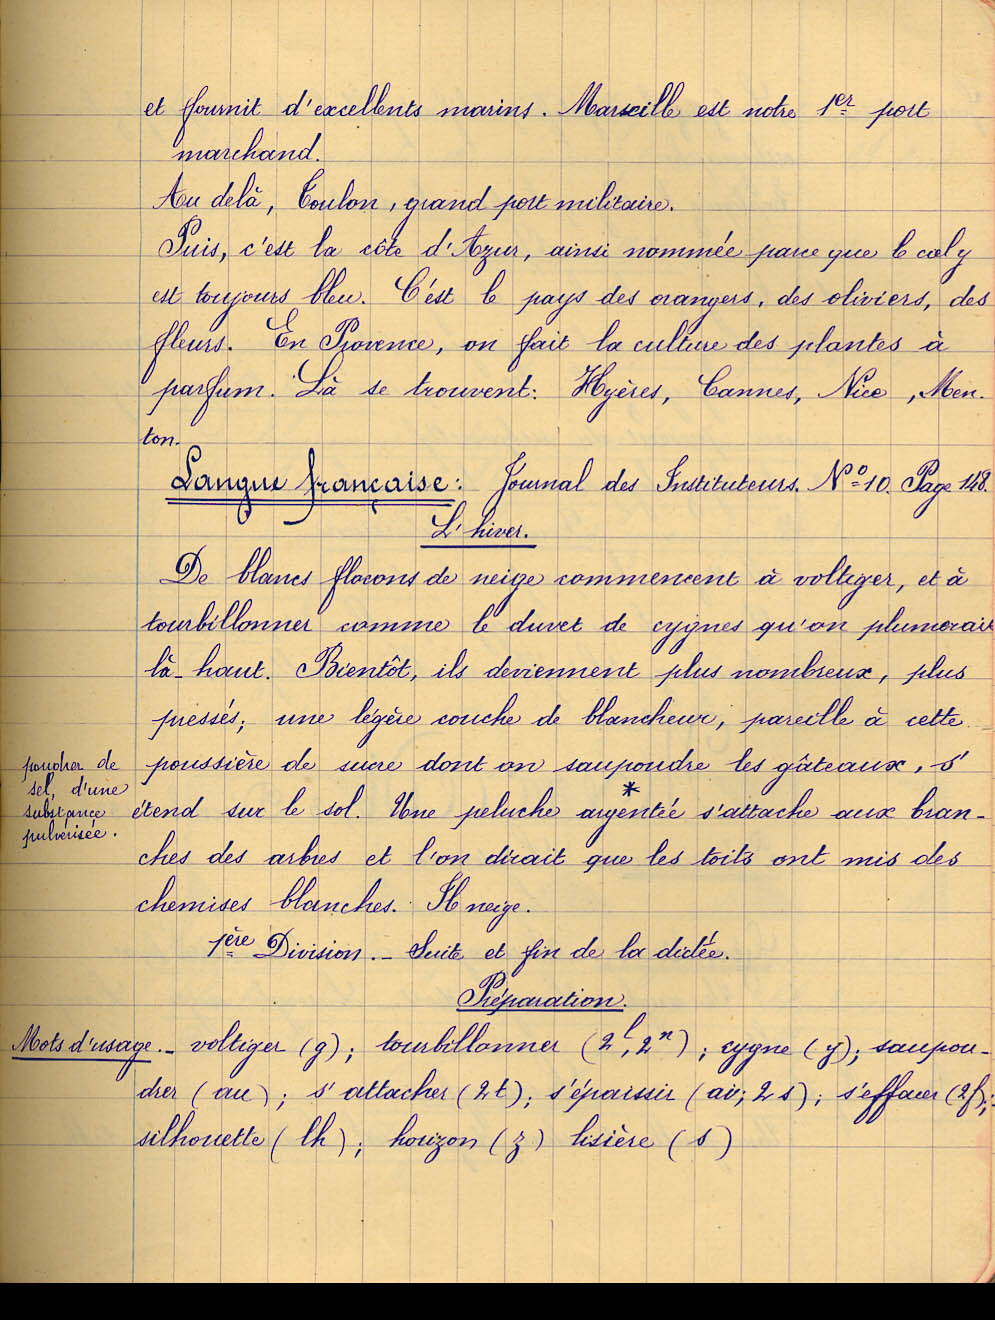 et fournit d'excellents marins. Marseille est notre 1er port
marchand.
Au delà, Toulon, grand port militaire.
Puis, c'est la côte d'Azur, ainsi nommée parce que le ciel y
est toujours bleu. C'est le pays des orangers, des oliviers, des
fleurs. En Provence, on fait la culture des plantes à
parfum. Là se trouvent: Hyères, Cannes, Nice, Men-
ton.
Langue française: Journal des Instituteurs. No 10. Page 148.
L'hiver.
De blancs flocons de neige commencent à voltiger, et à
tourbillonner comme le duvet de cygnes qu'on plumerait
là-haut. Bientôt, ils deviennent plus nombreux, plus
pressés; une légère couche de blancheur, pareille à cette
poudrer de
sel, d'une
substance
pulvérisée.
poussière de sucre dont on saupoudre les gâteaux, s'
étend sur le sol. Une peluche argentée* s'attache aux bran-
ches des arbres et l'on dirait que les toits ont mis des
chemises blanches. Il neige.
1ère Division. - Suite et fin de la dictée.
Préparation.
Mots d'usage. - voltiger (g); tourbillonner (2 l, 2 n); cygne (y); saupou-
drer (au); s'attacher (2 t); s'épaissir (ai; 2 s); s'effacer (2 f);
silhouette (lh); horizon (z) lisière (s)